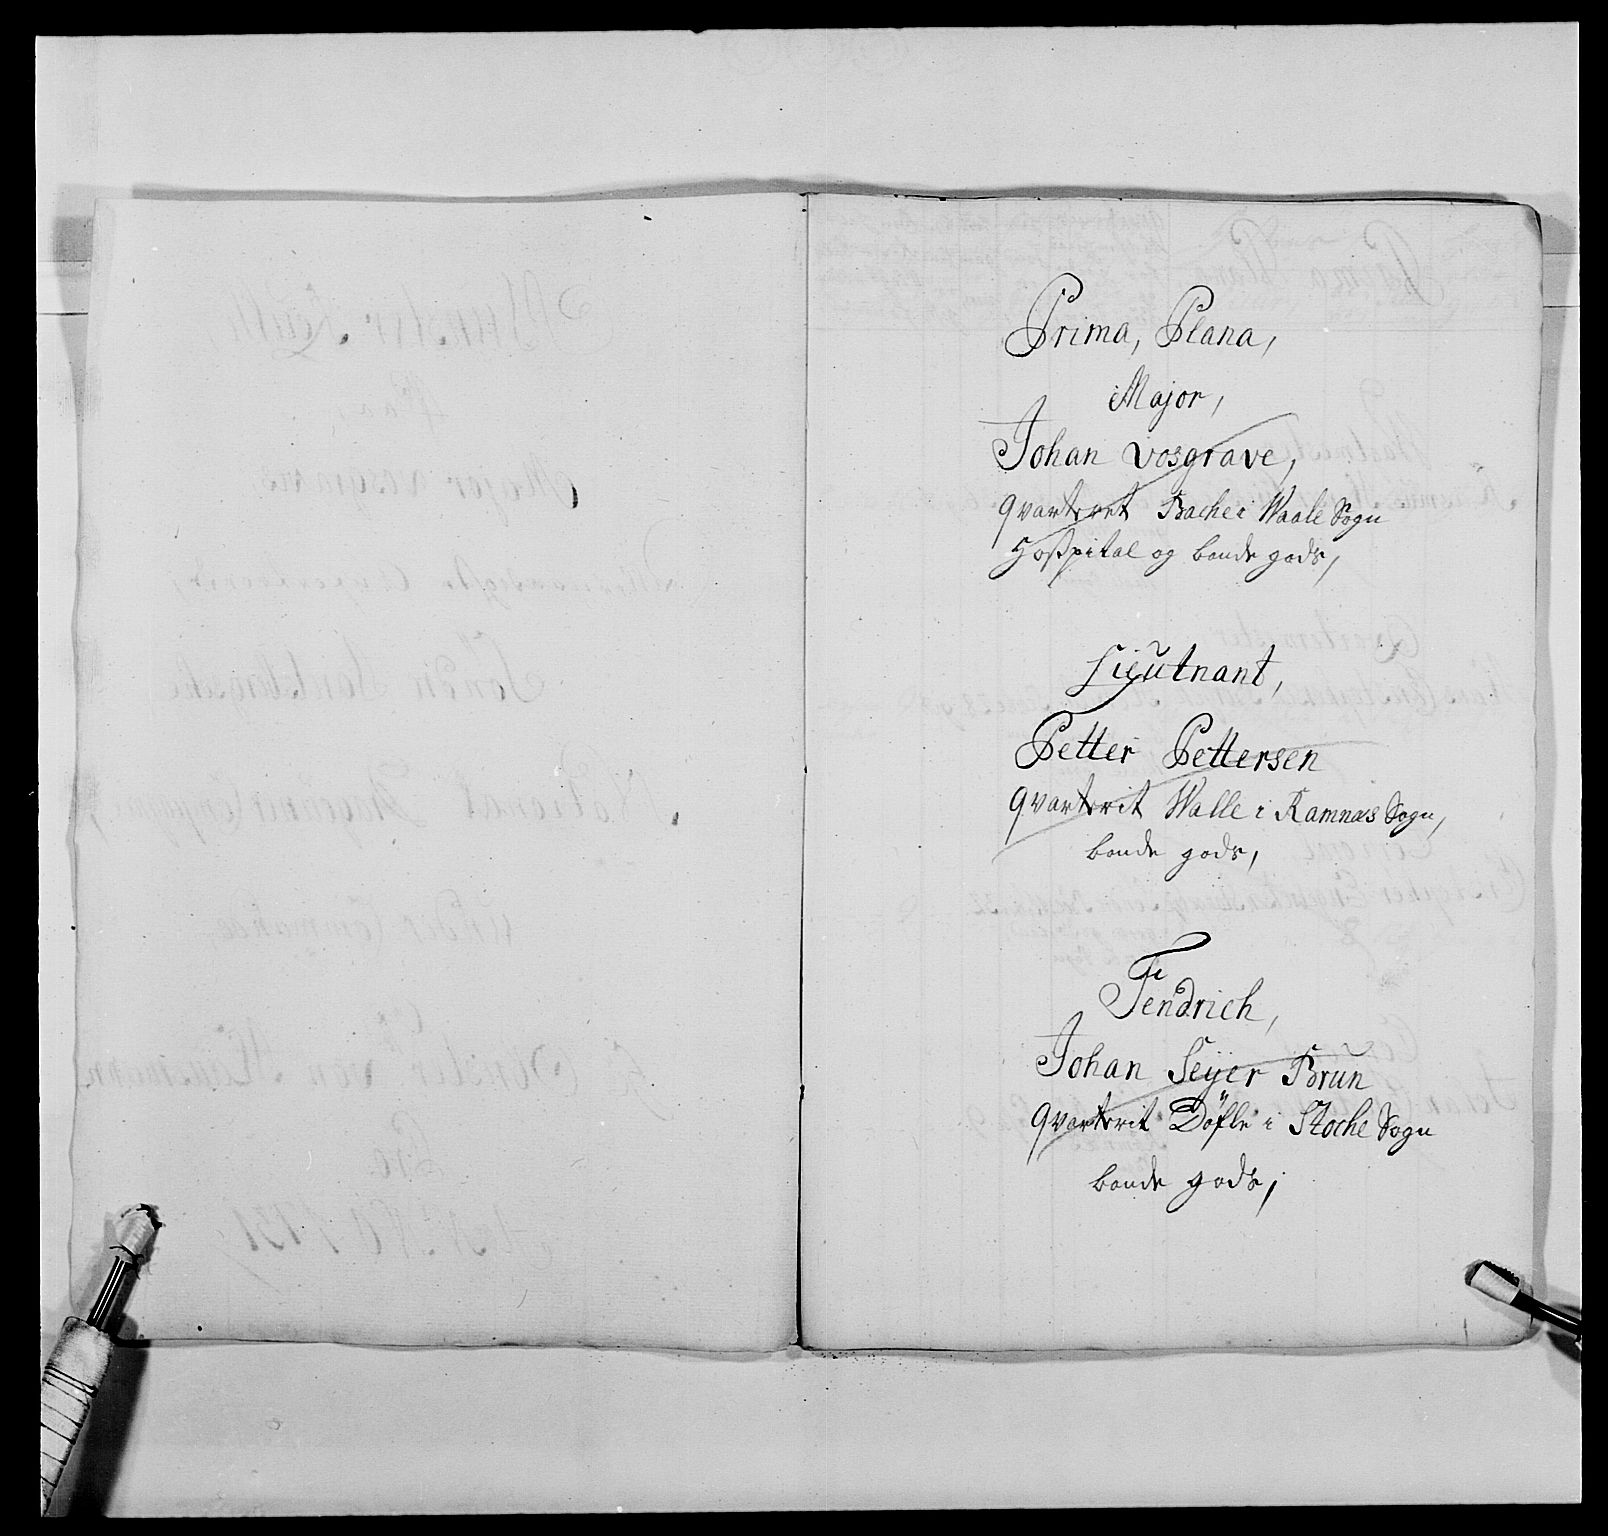 Prima, Plana,
Major,
Johan Vosgrave,
qvarteret Bache i Waale Sogn
Hospital og bonde gods,
Lieutnant,
Petter Pettersen
qvarterit Walle i Ramnæs Sogn,
bonde gods,
Fendrich,
Johan Seÿer Brun
qvarterit Døfle i Stoche Sogn
bonde gods,